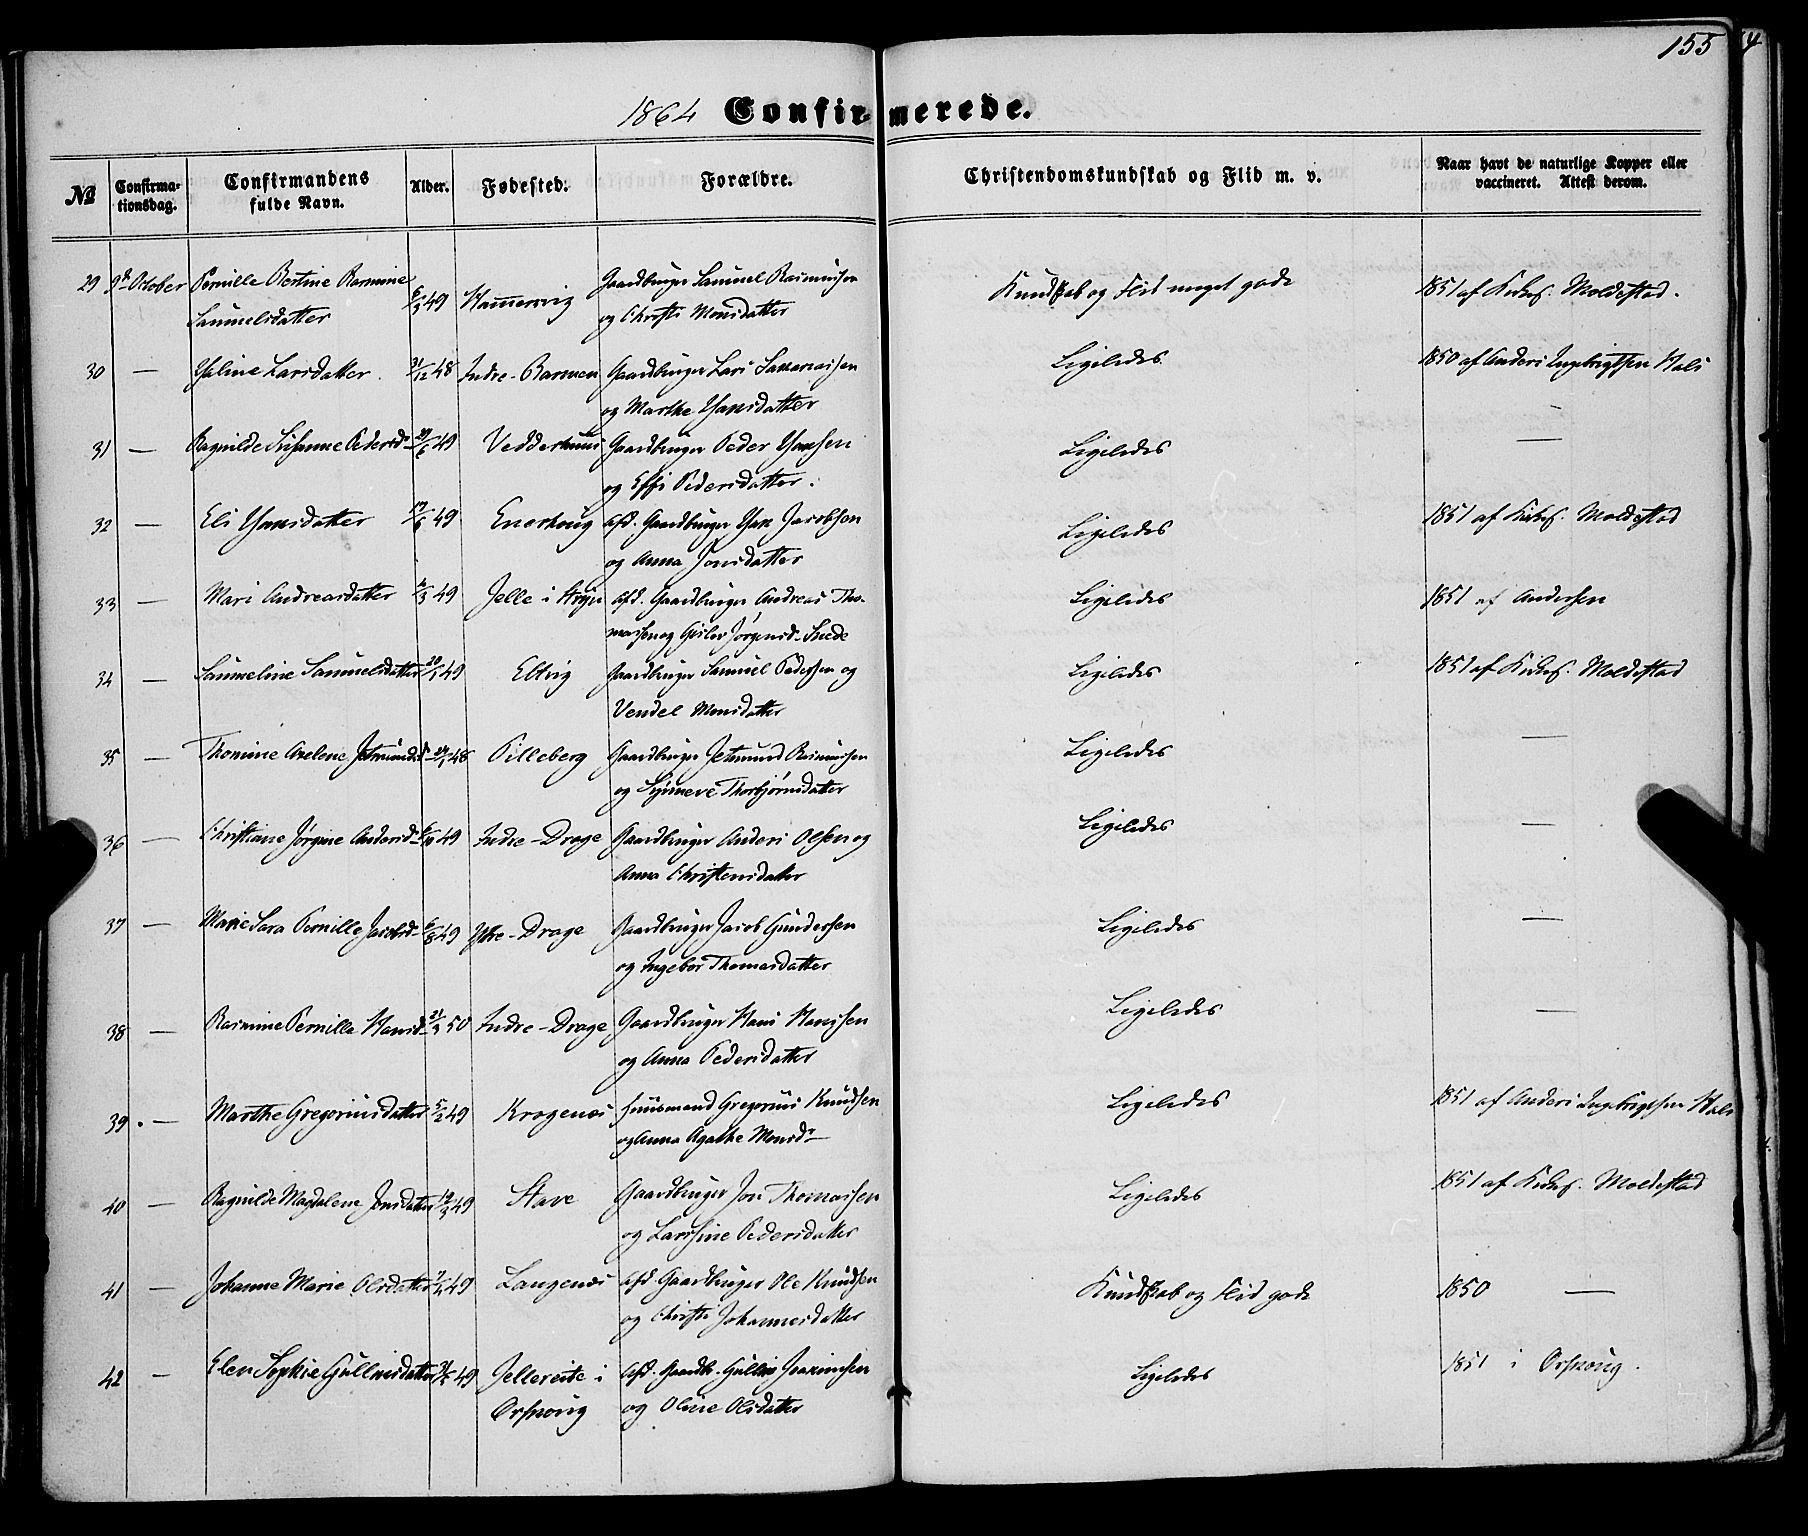 155
1864 Confirmerede.
№ Confirma-tionsdag. Confirmandens fulde Navn. Alder. Fødested. Forældre. Christendomskundskab og Flid m. v. Naar havt de naturlige Kopper eller vaccineret. Attest derom.
29 9de October Pernille Bertine Rasmine 6/3 49 Hammersvig Gaardbruger Samuel Rasmussen Kundskab og Flid meget gode 1851 af Kirkes. Moldestad.
Samuelsdatter og Christi Monsdatter
30 — Haline Larsdatter. 31/12 48 Indre-Barmen Gaardbruger Lars Ligeledes 1850 af Anders Ingebrigtsen Hals
og Marthe Hansdatter
31 — Ragnilde Susanne Pedersd— /6 49 Vedderhuus Gaardbruger Peder Hansen Ligeledes —
og Effi Pedersdatter.
32 — Eli Hansdatter 17/6 49 Enerhoug afd. Gaardbruger Hans Jacobsen Ligeledes 1851 af Kirkes. Moldestad
og Anna Jonsdatter
33 — Mari Andreasdatter /3 49 Jelle i Stryn afd. Gaardbruger Andreas Tho- Ligeledes 1851 af Andersen
massen og Jørgensd.
34 — Samueline Samuelsdatter 20/1 49 Eltvig Gaardbruger Samuel Pedersen og Ligeledes 1851 af Kirkes. Moldestad
Vendel Monsdatter
35 — Thomine Axelene Jetmundsd— 24/1 48 Pilleberg Gaardbruger Jetmund Rasmussen Ligeledes —
og Synneve Thorbjørnsdatter
36 — Christiane Jørgine Andersd— 6/10 49 Indre-Drage Gaardbruger Anders Olsen og Ligeledes —
Anna Christensdatter
37 — Marie Sara Pernille Jacobsd— 6/8 49 Ytre-Drage Gaardbruger Jacob Gundersen Ligeledes —
og Ingebor Thomasdatter
38 — Rasmine Pernille Hansd— 21/3 50 Indre-Drage Gaardbruger Hans Hansen Ligeledes —
og Anna Pedersdatter
39. — Marthe Gregoriusdatter 5/2 49 Kragenæs Huusmand Gregorius Knudsen Ligeledes 1851 af Anders Ingebrigtsen Hals
og Anna Agathe Monsdr—
40 — Ragnilde Magdalene Jonsdatter 19/3 49 Stave Gaardbruger Jon Thomassen Ligeledes 1851 af Kirkes. Moldestad
og Larsine Pedersdatter
41 — Johanne Marie Olsdatter 49 Langenæs afd. Gaardbruger Ole Knudsen Kundskab og Flid gode 1850 —
og Christi Johannesdatter
42 — Elen Sophie Gullviksdatter 49 Jellereite i afd. Gaardb. Joakimsen Ligeledes 1851 i Ørskoug.
Ørskoug og Oline Olsdatter